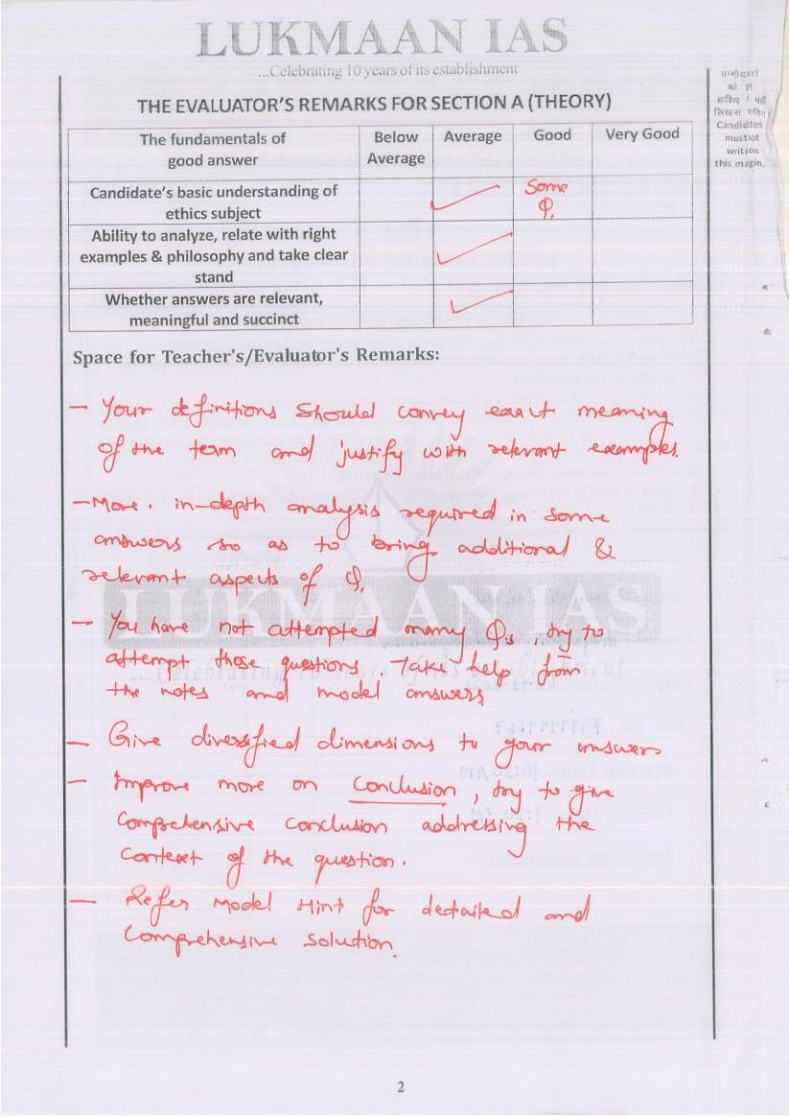 LUKMAAN IAS
...Celebrating 10 years of its establishment
THE EVALUATOR'S REMARKS FOR SECTION A (THEORY)
The fundamentals of good answer | Below Average | Average | Good | Very Good
Candidate's basic understanding of ethics subject | | ✓ | Some Q. |
Ability to analyze, relate with right examples & philosophy and take clear stand | | ✓ | |
Whether answers are relevant, meaningful and succinct | | ✓ | |
Space for Teacher's/Evaluator's Remarks:
– Your definitions should convey exact meaning
of the term and justify with relevant examples.
– More . in-depth analysis required in some
answers so as to bring additional &
relevant aspects of Q.
– You have not attempted many Qs, try to
attempt those questions. Take help from
the notes and model answers
– Give diversified dimensions to your answers
– Improve more on Conclusion, try to give
Comprehensive conclusion addressing the
Context of the question.
– Refer Model Hint for detailed and
Comprehensive Solution.
LUKMAAN IAS
Candidates
must not
write on
this margin.
2